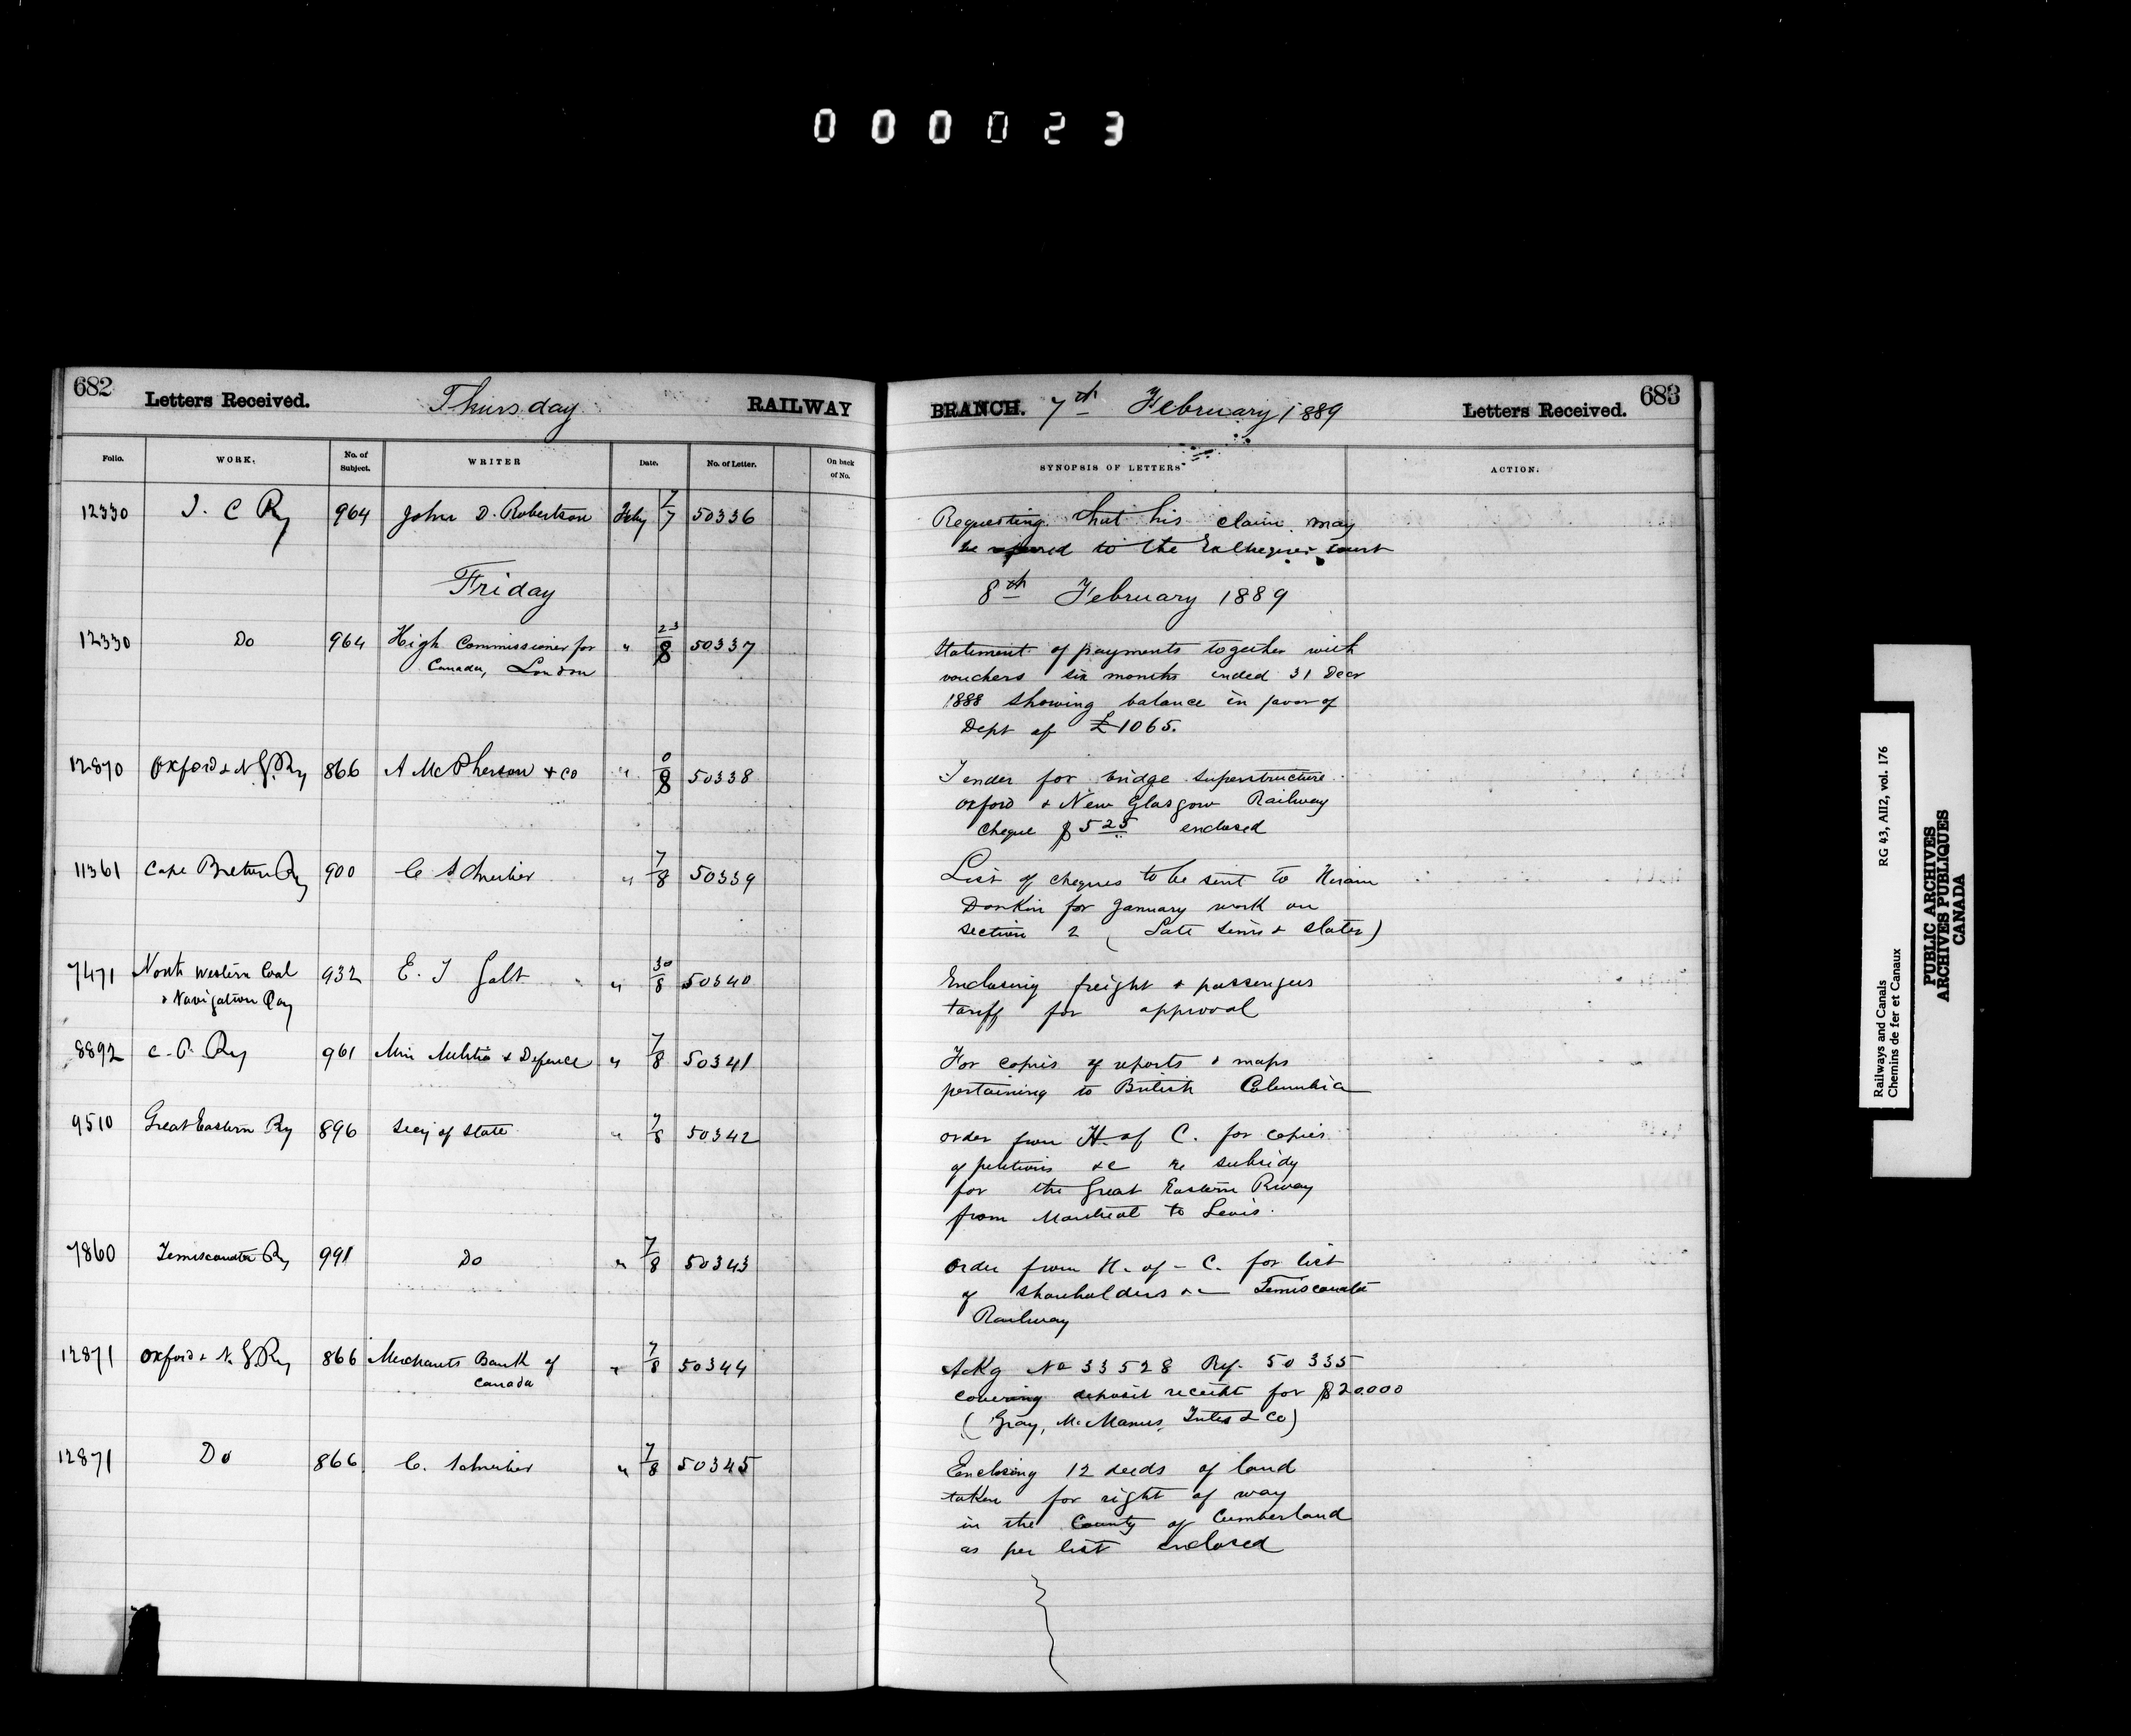 000023
682 Letters Received. Thursday RAILWAY
Folio. WORK. No. of Subject. WRITER Date. No. of Letter. On back of No.
12330 I. C Ry 964 John D. Robertson Feby 7/7 50336
Friday
12330 Do 964 High Commissioner for " 23/8 50337
Canada, London
12870 Oxford & N G. Ry 866 A McPherson & Co " 8 50338
11361 Cape Breton Ry 900 C Schreiber " 7/8 50339
7471 North Western Coal 932 E. T Galt " 30/8 50340
& Navigation Coy
8892 C. P. Ry 961 Min Militia & Defence " 7/8 50341
9510 Great Eastern Ry 896 Secy of State " 7/8 50342
7860 Temiscouata Ry 991 Do " 7/8 50343
12871 Oxford & N. G. Ry 866 Merchants Bank of " 7/8 50344
Canada
12871 Do 866 C. Schreiber " 7/8 50345
BRANCH. 7th February 1889 Letters Received. 683
SYNOPSIS OF LETTERS ACTION.
Requesting that his claim may
be referred to the Exchequer Court
8th February 1889
Statement of payments together with
vouchers six months ended 31 Decr
1888 showing balance in favor of
Dept of £1065.
Tender for bridge superstructure
Oxford & New Glasgow Railway
Cheque $525 enclosed
List of cheques to be sent to Hiram
Donkin for January work on
section 2 (Late Sims & Slater)
Enclosing freight & passengers
tariff for approval
For copies of reports & maps
pertaining to British Columbia
Order from H. of C. for copies
of petitions &c re subsidy
for the Great Eastern Rway
from Montreal to Levis.
Order from H. of - C. for list
of shareholders &c Temiscouata
Railway
Ackg No 33528 Ry. 50335
covering deposit receipt for $20.000
(Gray, McManus, & Co)
Enclosing 12 deeds of land
taken for right of way
in the County of Cumberland
as per list enclosed
Railways and Canals RG 43, AII2, vol. 176
Chemins de fer et Canaux
PUBLIC ARCHIVES
ARCHIVES PUBLIQUES
CANADA